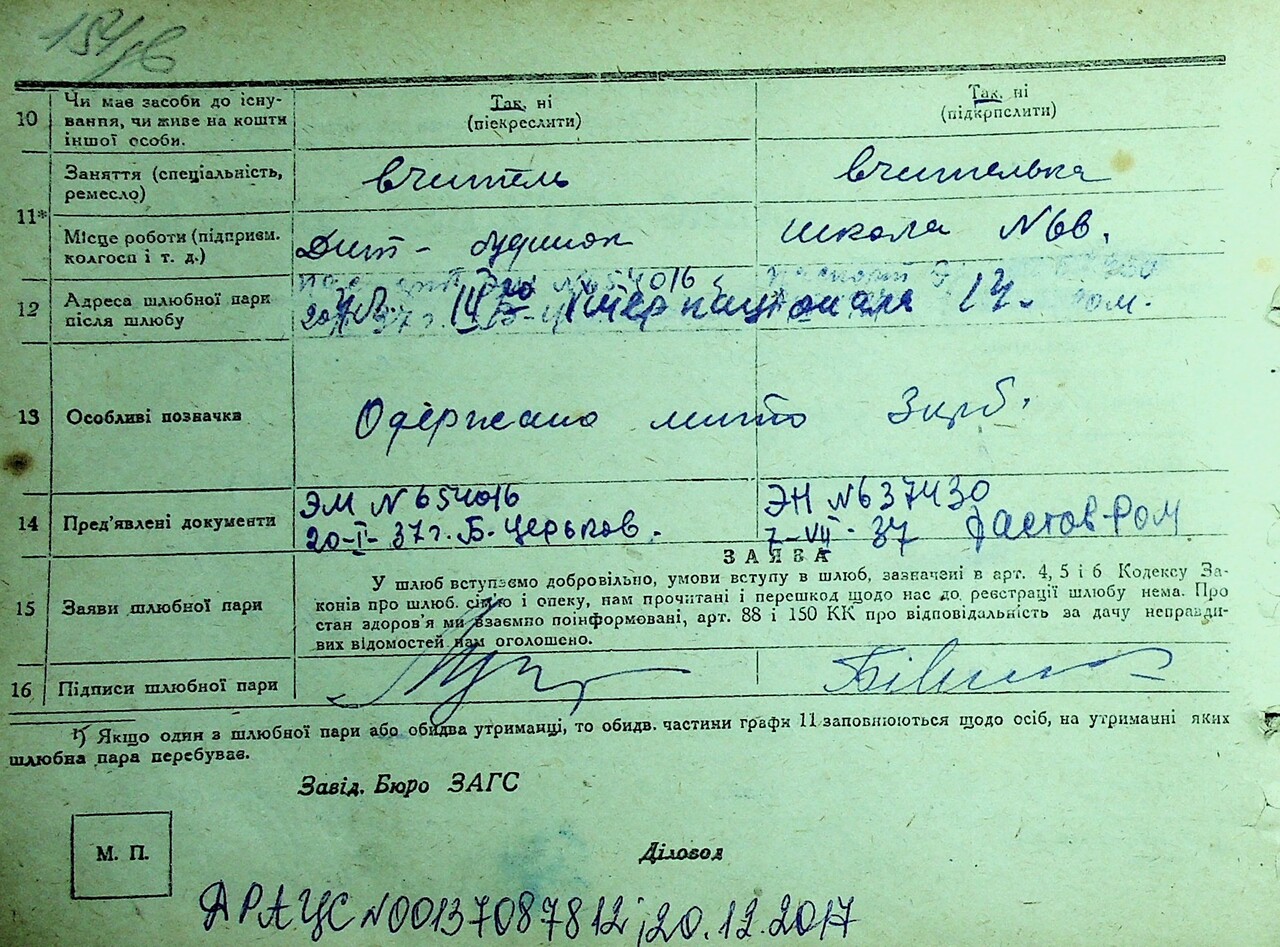 10 Чи має засоби до існу-
вання, чи живе на кошти
іншої особи.
Так, ні
(піекреслити)
Так, ні
(підкрпслити)
11* Заняття (спеціальність,
ремесло)
вчитель
вчителька
Місце роботи (підприєм.
колгосп і т. д.)
Дит-будинок
школа №6в.
12 Адреса шлюбної пари
після шлюбу
№654016
Інтернаціонала 17.
13 Особливі позначка
Одержано мито 3крб.
14 Пред'явлені документи
ЭМ №654016
20-I-37г. Б-Церьков.
ЭН №637430
7-VII-37 Фастов-РОМ
15 Заяви шлюбної пари
ЗАЯВА
У шлюб вступаємо добровільно, умови вступу в шлюб, зазначені в арт. 4, 5 і 6 Кодексу За-
конів про шлюб. сім'ю і опеку, нам прочитані і перешкод щодо нас до реєстрації шлюбу нема. Про
стан здоров'я ми взаємно поінформовані, арт. 88 і 150 КК про відповідальність за дачу неправди-
вих відомостей нам оголошено.
16 Підписи шлюбної пари
¹) Якщо один з шлюбної пари або обидва утриманці, то обидв. частини графи 11 заповнюються щодо осіб, на утриманні яких
шлюбна пара перебуває.
Завід. Бюро ЗАГС
М. П.
Діловод
ДРАЦС №00137087812; 20.12.2017